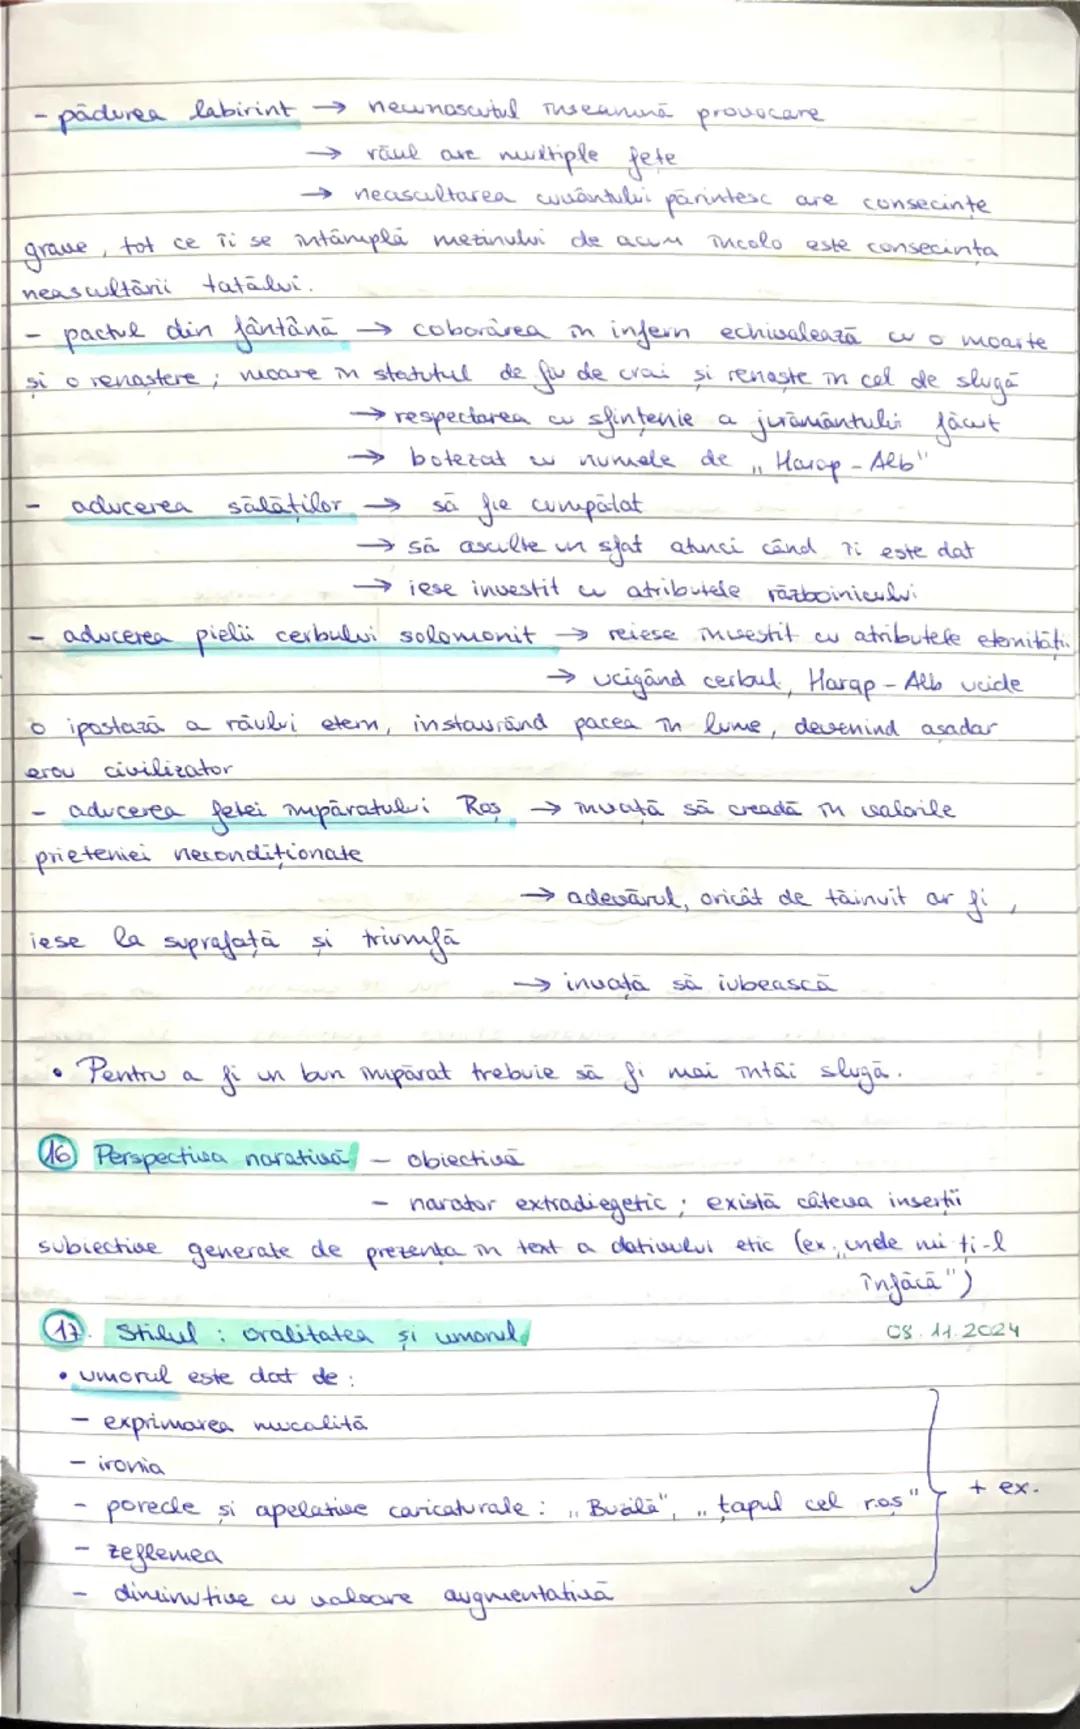 - pădurea labirint → necunoscutul înseamnă provocare
→ răul are multiple fețe
→ neascultarea cuvântului părintesc are consecințe
grave, tot ce îi se întâmplă mezinului de acum încolo este consecința
neascultării tatălui.
- pactul din fântână → coborârea în infern echivalează cu o moarte
și o renaștere; moare în statutul de fiu de crai și renaște în cel de slugă
→ respectarea cu sfințenie a jurământului făcut
→ botezat cu numele de „Harap-Alb"
- aducerea sălăților → să fie cumpătat
→ să asculte un sfat atunci când îi este dat
→ iese investit cu atributele războinicului
- aducerea pielii cerbului solomonit → reiese investit cu atributele eternității
→ ucigând cerbul, Harap-Alb ucide
o ipostază a răului etern, instaurând pacea în lume, devenind așadar
erou civilizator
- aducerea fetei împăratului Roș → învață să creadă în valorile
prieteniei necondiționate
→ adevărul, oricât de tăinuit ar fi,
iese la suprafață și triumfă
→ învață să iubească
• Pentru a fi un bun împărat trebuie să fi mai întâi slugă.
16 Perspectiva narativă - obiectivă
- narator extradiegetic; există câteva inserții
subiective generate de prezența în text a dativului etic (ex. „unde mi ți-l
înfăcă")
17. Stilul: oralitatea și umorul 08.11.2024
• umorul este dat de:
- exprimarea mucalită
- ironia
- porecle și apelative caricaturale: „Buzilă", „țapul cel roș" + ex.
- zeflemea
- diminutive cu valoare augmentativă